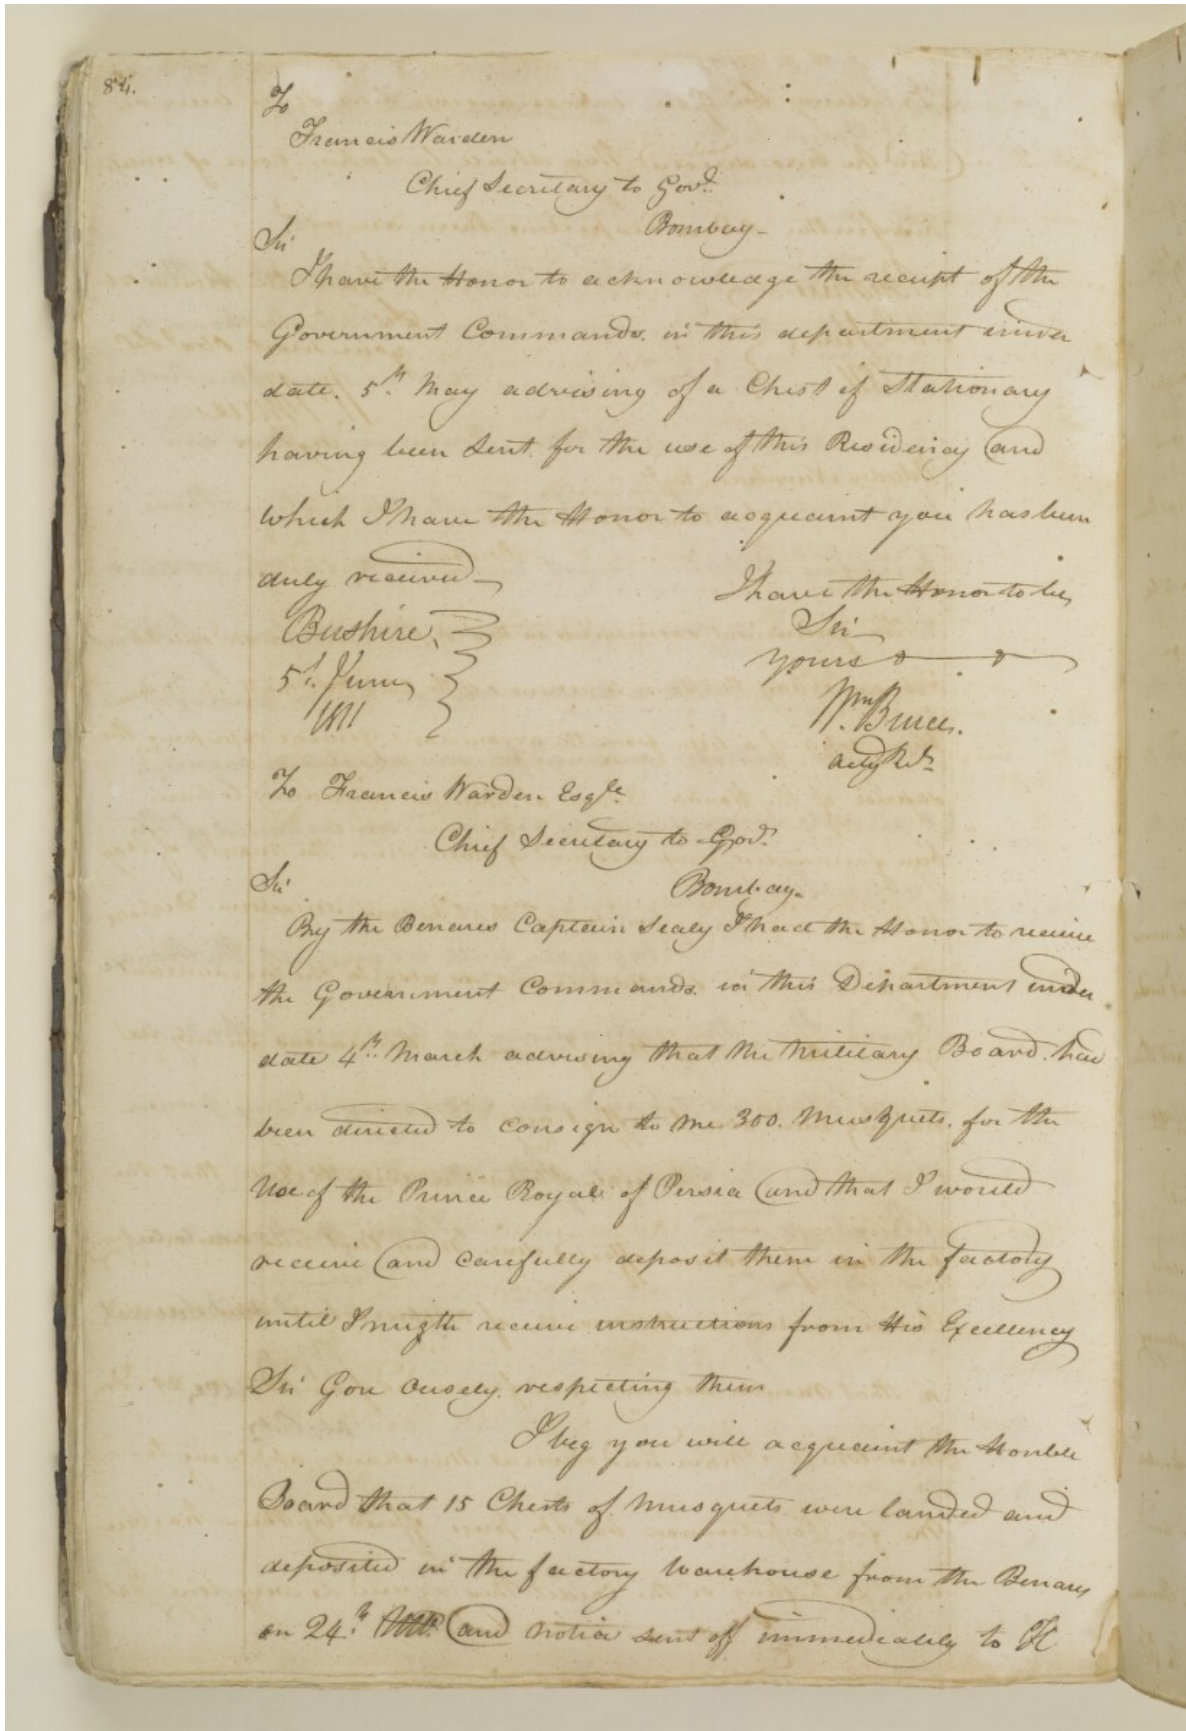 84.
To
Francis Warden
Chief Secretary to Govt.
Bombay-
Sir
I have the Honor to acknowledge the receipt of the
Government Commands. in this department under
date. 5th. May advising of a Chest of Stationary
having been sent. for the use of this Residency and
which I have the Honor to acquaint you has been
duly received-
I have the Honor to be,
Bushire,
Sir-
yours
5th. June
1811
Wm. Bruce.
actg Rdt.
To Francis Warden Esqre.
Chief Secretary to Govt.
Sir
Bombay-
By the Benares Captain Sealy I had the Honor to receive
the Government Commands. in this Department under
date 4th. March advising that the Military Board. had
been directed to consign to me 300. Musquets. for the
Use of the Prince Royal of Persia and that I would
receive and carefully deposit them in the factory
until I migth receive instructions from His Excellency
Sir Gore Ousely. respecting them
I beg you will acquaint the Honble
Board that 15 Chests of Musquets were landed and
deposited in the factory Warehouse from the Benares
on 24th. and notice sent off immediately to H